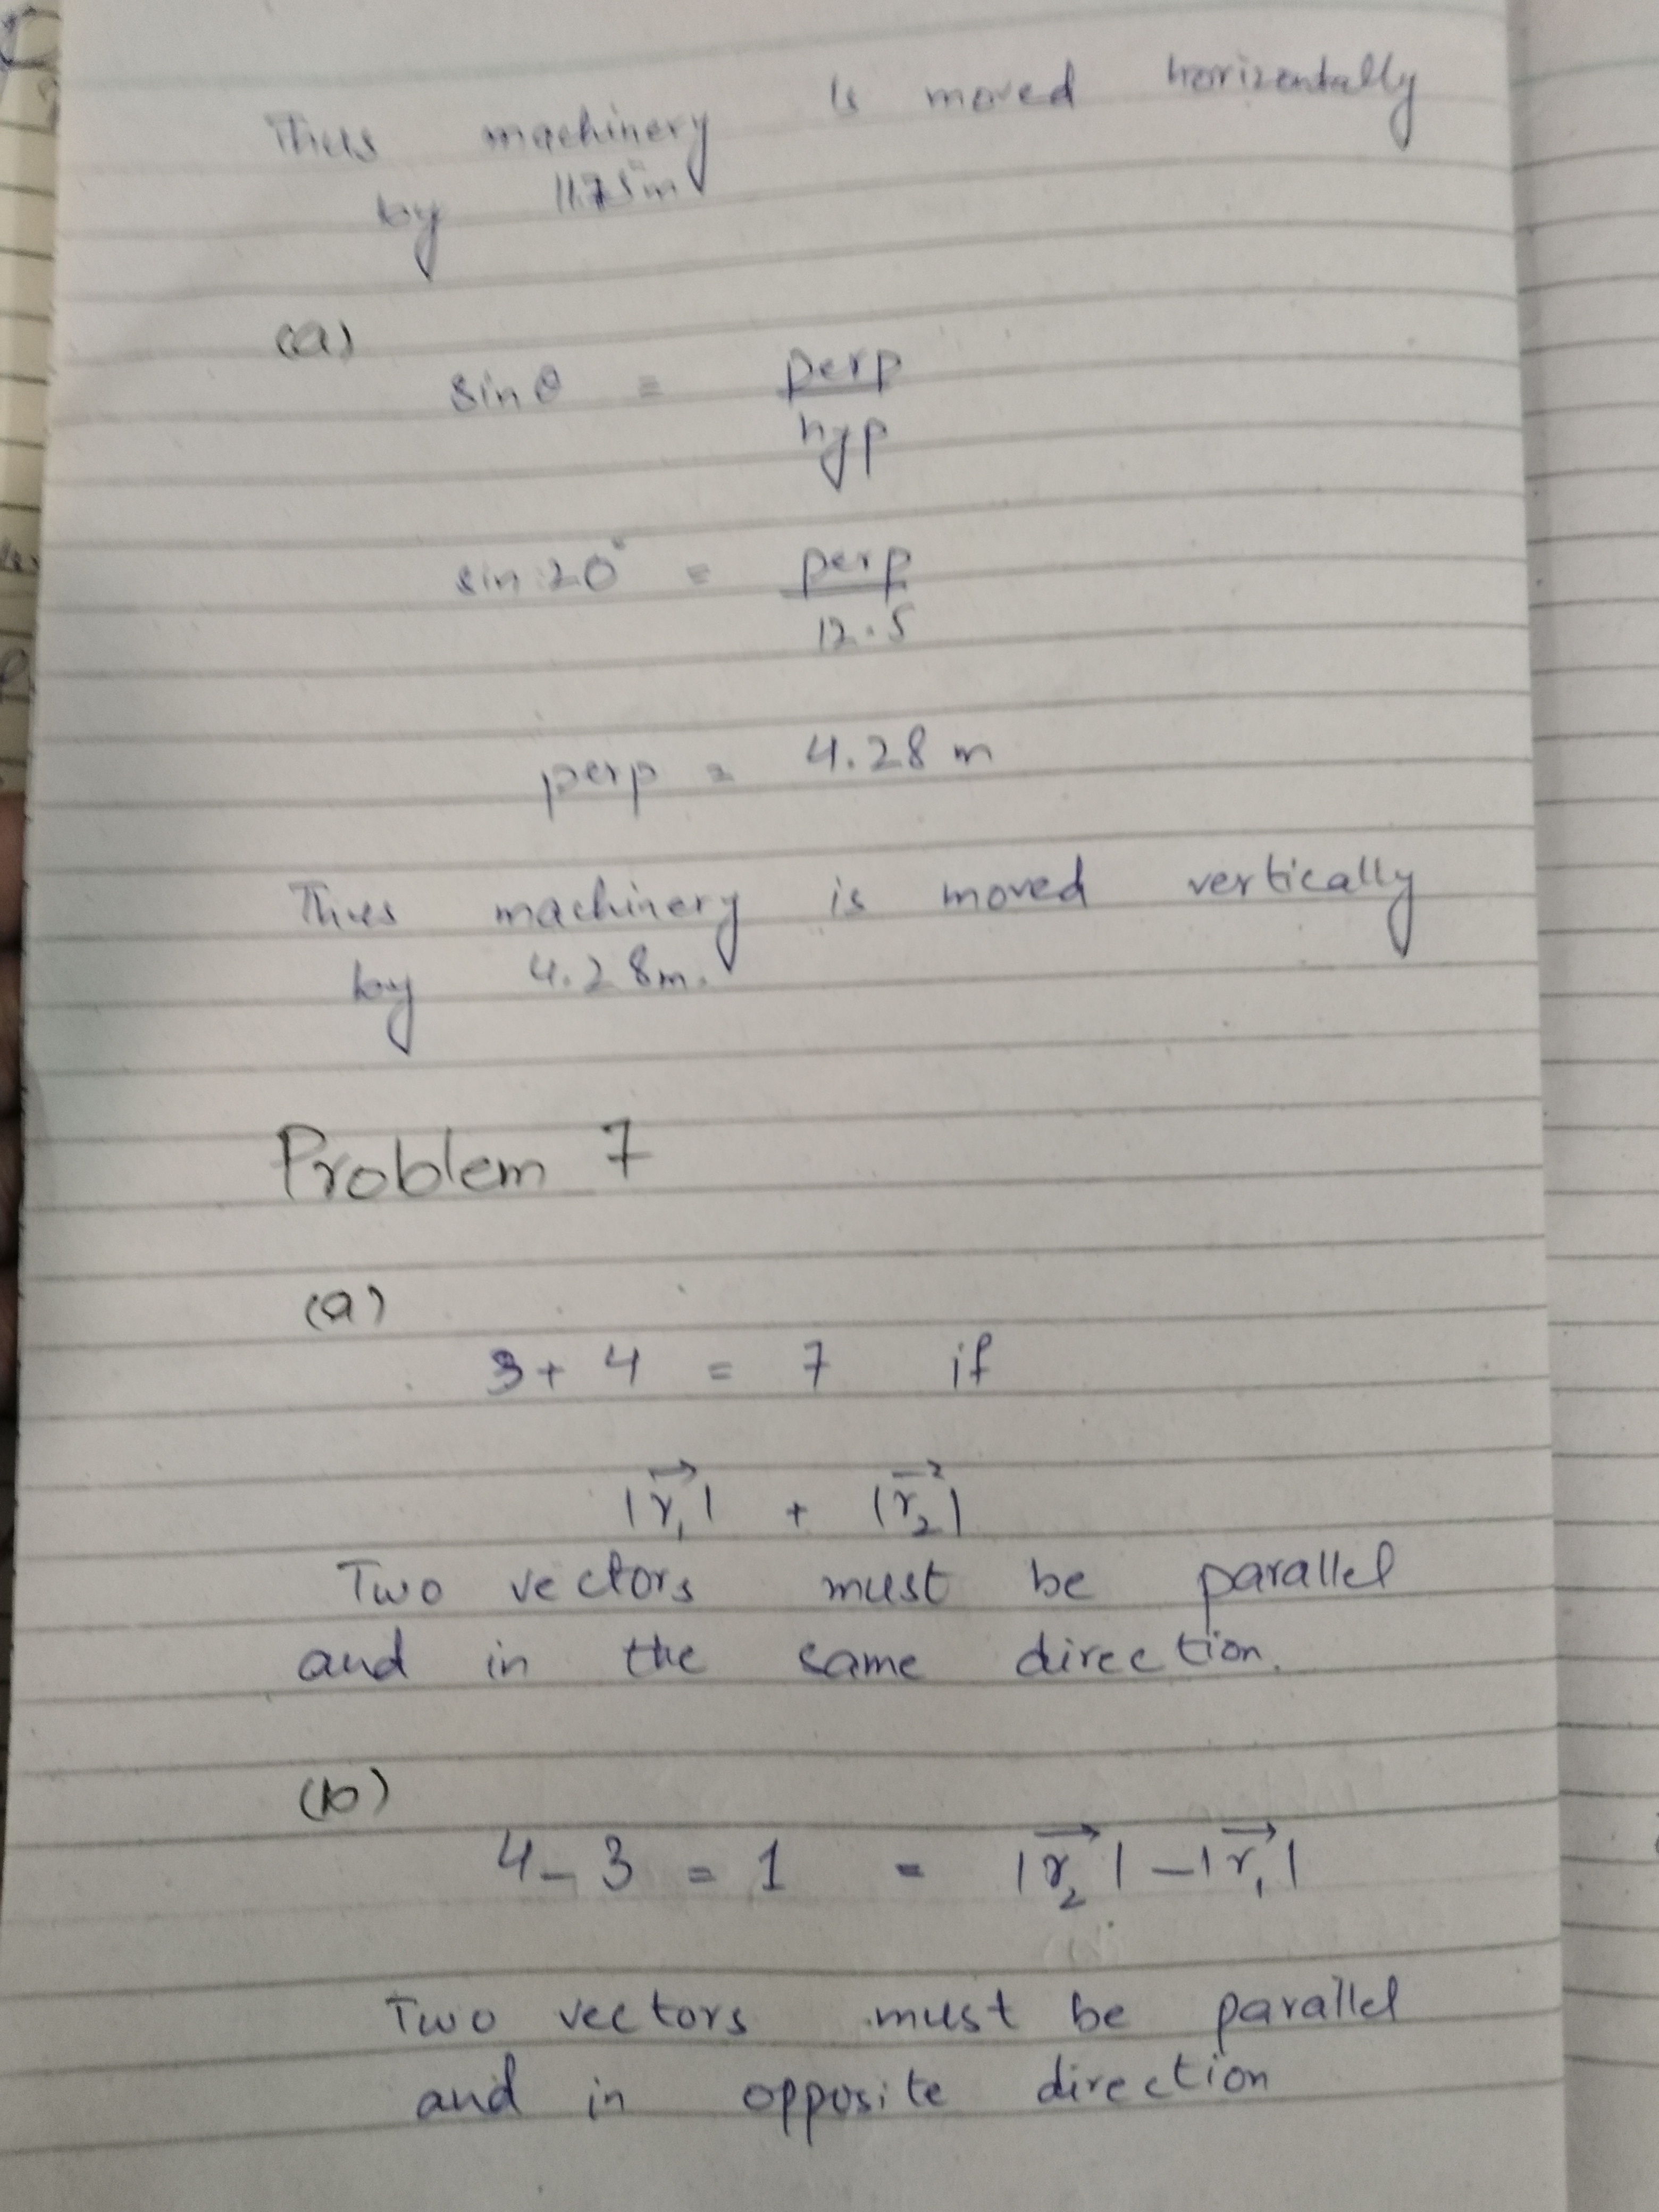 Thus machinery is moved horizontally
by 11.75m
(a)
sin θ = perp
hyp
sin 20° = perp
12.5
perp = 4.28 m
Thus machinery is moved vertically
by 4.28m.
Problem 7
(a)
3 + 4 = 7 if
|r⃗₁| + |r⃗₂|
Two vectors must be parallel
and in the same direction.
(b)
4 - 3 = 1 = |r⃗₂| - |r⃗₁|
Two vectors must be parallel
and in opposite direction